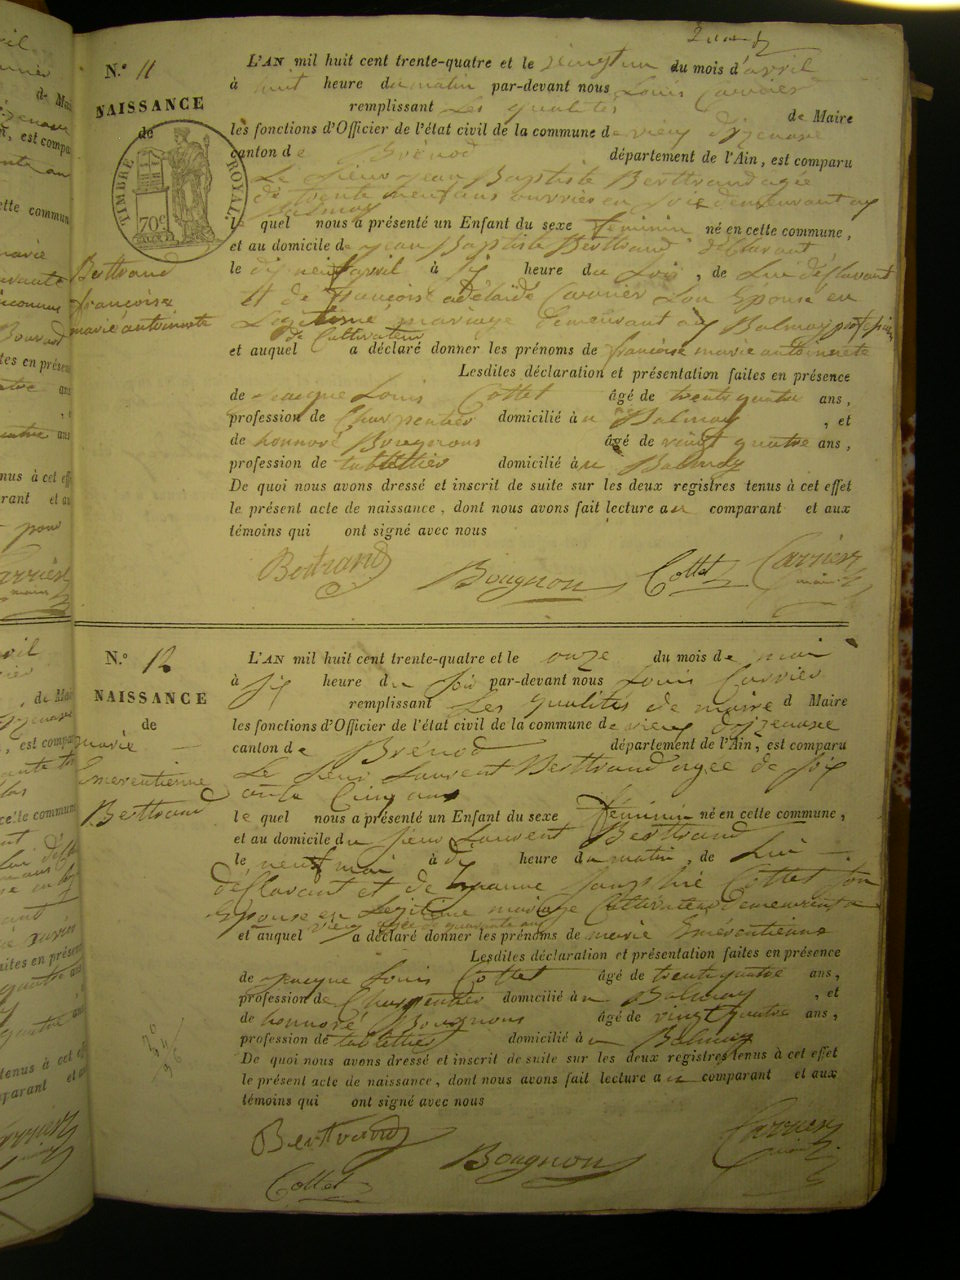 N.° 11
NAISSANCE
de
TIMBRE ROYAL.
70c
Berttrand
françoise
marie antoinette
L'AN mil huit cent trente-quatre et le vingt un du mois d'avril
à huit heure du matin par-devant nous Louis Carrier
remplissant les qualités de Maire
les fonctions d'Officier de l'état civil de la commune de vieu d'izenave
canton de Brénod département de l'Ain, est comparu
Le sieur jean Baptiste Berttrand agée
de trente neuf ans ouvrier en demeurant au
Balmay
le quel nous a présenté un Enfant du sexe féminin né en cette commune,
et au domicile de jean Baptiste Berttrand déclarant
le dix neuf avril à six heure du soir, de Lui déclarant
et de françoise adélaïde Carrier son Epouse en
Legitime mariage demeurant au Balmay profession
de Cultivateur
et auquel a déclaré donner les prénoms de françoise marie antoinette
Lesdites déclaration et présentation faites en présence
de jacque Louis Cottet âgé de trente quatre ans,
profession de Charpentier domicilié à u Balmay, et
de honnoré Bougnons âgé de vingt quatre ans,
profession de tablettier domicilié à u Balmay
De quoi nous avons dressé et inscrit de suite sur les deux registres tenus à cet effet
le présent acte de naissance, dont nous avons fait lecture au comparant et aux
témoins qui ont signé avec nous
Bertrand Bougnon Cottet Carrier
maire
N.° 12
NAISSANCE
de
marie
Emerentienne
Berttrand
L'AN mil huit cent trente-quatre et le onze du mois de mai
à six heure du soir par-devant nous Louis Carrier
remplissant Les qualités de maire d Maire
les fonctions d'Officier de l'état civil de la commune de vieu d'izenave
canton de Brénod département de l'Ain, est comparu
Le sieur Laurent Berttrand agée de soix
ante Cinq ans
le quel nous a présenté un Enfant du sexe féminin né en cette commune,
et au domicile du sieur Laurent Berttrand
le neuf mai à dix heure du matin, de Lui
déclarant et de Cottet son
Epouse en Legitime mariage Cultivateur demeurant a
vieu agée de quarante
et auquel a déclaré donner les prénoms de marie Emérentienne
Lesdites déclaration et présentation faites en présence
de jacque Louis Cottet âgé de trente quatre ans,
profession de Charpentier domicilié à u Balmay, et
de honnoré Bougnons âgé de vingt quatre ans,
profession de tablettier domicilié à u Balmay
De quoi nous avons dressé et inscrit de suite sur les deux registres tenus à cet effet
le présent acte de naissance, dont nous avons fait lecture au comparant et aux
témoins qui ont signé avec nous
Berttrand Bougnon Carrier
maire
Cottet